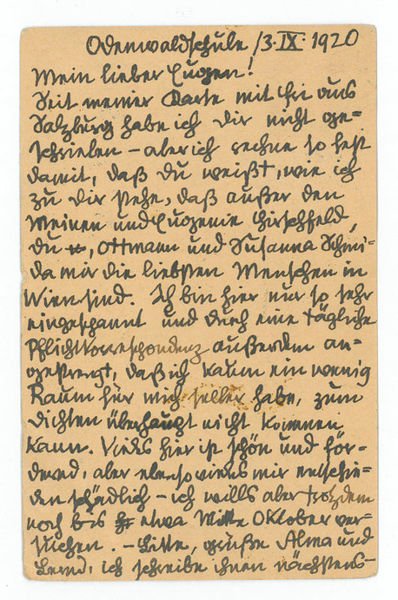 Odenwaldschule 13.IX.1920
Mein lieber Eugen!
Seit meiner Karte mit Fri aus
Salzburg habe ich Dir nicht ge-
schrieben – aber ich rechne so fest
damit, daß Du weißt, wie ich
zu Dir stehe, daß außer den
Meinen und Eugenie Hirschfeld,
Du, Ottmann und Susanna Schmi-
da mir die liebsten Menschen in
Wien sind. Ich bin hier nur so sehr
eingespannt und durch eine tägliche
Pflichtkorrespondenz außerdem an-
gestrengt, daß ich kaum ein wenig
Raum für mich selber habe, zum
Dichten überhaupt nicht kommen
kann. Vieles hier ist schön und för-
dernd, aber ebenso vieles mir entschie-
den schädlich – ich wills aber trotzdem
noch bis etwa Mitte Oktober ver-
suchen. – Bitte, grüße Alma und
ich schreibe ihnen nächstens –